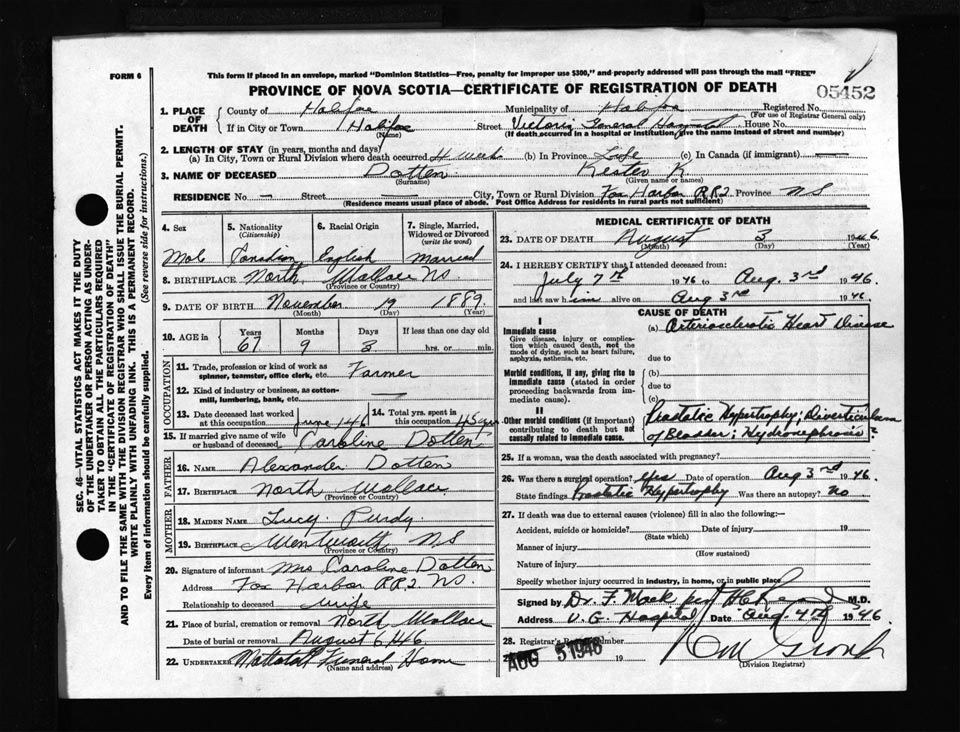 FORM 6
This form if placed in an envelope, marked "Dominion Statistics—Free, penalty for improper use $300," and properly addressed will pass through the mail "FREE"
PROVINCE OF NOVA SCOTIA—CERTIFICATE OF REGISTRATION OF DEATH
05452
1. PLACE OF DEATH County of Halifax Municipality of Halifax Registered No.
(For use of Registrar General only)
If in City or Town Halifax Street Victoria General Hospital House No.
(Name) (If death occurred in a hospital or institution, give the name instead of street and number)
2. LENGTH OF STAY (in years, months and days)
(a) In City, Town or Rural Division where death occurred 4 week (b) In Province Life (c) In Canada (if immigrant) —
3. NAME OF DECEASED Dotten K.
(Surname) (Given name or names)
RESIDENCE No. — Street — City, Town or Rural Division Fox Harbor R.R.2. Province NS
(Residence means usual place of abode. Post Office Address for residents in rural parts not sufficient)
4. Sex 5. Nationality (Citizenship) 6. Racial Origin 7. Single, Married, Widowed or Divorced (write the word)
Canadian English Married
8. BIRTHPLACE North Wallace NS.
(Province or Country)
9. DATE OF BIRTH November 19 1889
(Month) (Day) (Year)
10. AGE in Years Months Days If less than one day old
67 9 hrs. or min.
OCCUPATION
11. Trade, profession or kind of work as spinner, teamster, office clerk, etc. Farmer
12. Kind of industry or business, as cotton-mill, lumbering, bank, etc. —
13. Date deceased last worked at this occupation June 1946 14. Total yrs. spent in this occupation 45 yrs
15. If married give name of wife or husband of deceased Caroline Dotten
FATHER
16. NAME Alexander Dotten
17. BIRTHPLACE North Wallace
(Province or Country)
MOTHER
18. MAIDEN NAME Lucy Purdy.
19. BIRTHPLACE Wentworth NS
(Province or Country)
20. Signature of informant Mrs Caroline Dotten
Address Fox Harbor R.R.2 NS.
Relationship to deceased wife
21. Place of burial, cremation or removal North Wallace
Date of burial or removal August 6, 46
22. UNDERTAKER Funeral Home
(Name and address)
MEDICAL CERTIFICATE OF DEATH
23. DATE OF DEATH August 3 1946
(Month) (Day) (Year)
24. I HEREBY CERTIFY that I attended deceased from:
July 7th 1946 to Aug. 3rd 1946
and last saw him alive on Aug 3rd 1946
CAUSE OF DEATH
I
Immediate cause (a) Arteriosclerotic Heart Disease
Give disease, injury or complication which caused death, not the mode of dying, such as heart failure, asphyxia, asthenia, etc.
due to
Morbid conditions, if any, giving rise to immediate cause (stated in order proceeding backwards from immediate cause) (b)
due to
(c)
II
Other morbid conditions (if important) contributing to death but not causally related to immediate cause.
Prostatic Hypertrophy; Diverticulum of Bladder; Hydronephrosis?
25. If a woman, was the death associated with pregnancy?
26. Was there a surgical operation? yes Date of operation Aug 3rd 1946
State findings Prostatic Hypertrophy Was there an autopsy? No
27. If death was due to external causes (violence) fill in also the following:—
Accident, suicide or homicide? Date of injury 19
(State which)
Manner of injury
(How sustained)
Nature of injury
Specify whether injury occurred in industry, in home, or in public place
Signed by Dr. F. Mack per M.D.
Address V.G. Hospital Date Aug 4th 1946
28. Registrar's Record Number
AUG 5 1946 19
(Division Registrar)
SEC. 46—VITAL STATISTICS ACT MAKES IT THE DUTY
OF THE UNDERTAKER OR PERSON ACTING AS UNDER-
TAKER TO OBTAIN ALL THE PARTICULARS REQUIRED
IN THE "CERTIFICATE OF REGISTRATION OF DEATH"
AND TO FILE THE SAME WITH THE DIVISION REGISTRAR WHO SHALL ISSUE THE BURIAL PERMIT.
WRITE PLAINLY WITH UNFADING INK. THIS IS A PERMANENT RECORD.
Every item of information should be carefully supplied. (See reverse side for instructions.)